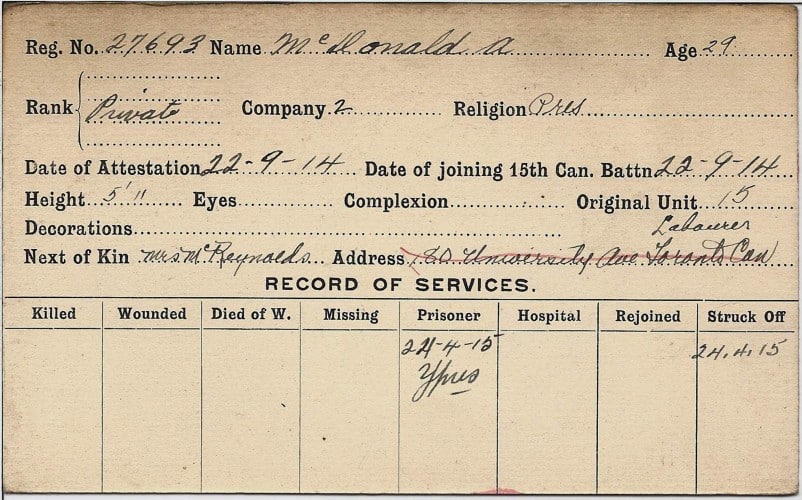 Reg. No. 27693 Name McDonald A Age 29
Rank Private Company 2 Religion Pres
Date of Attestation 22-9-14 Date of joining 15th Can. Battn 22-9-14
Height 5'11 Eyes Complexion Original Unit 15
Decorations Labourer
Next of Kin Mrs McReynolds Address 80 University Ave Toronto Can
RECORD OF SERVICES.
Killed Wounded Died of W. Missing Prisoner Hospital Rejoined Struck Off
24-4-15 24.4.15
Ypres